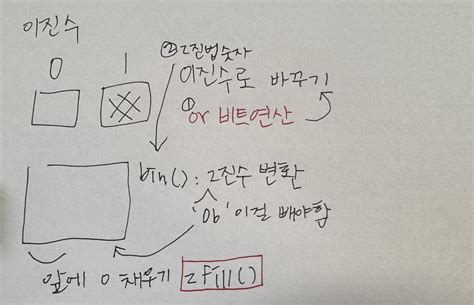 이진수
0 1
② 2진법 숫자
이진수로 바꾸기
① or 비트연산
bin() : 2진수 변환
'0b' 이걸 빼야함
앞에 0 채우기 zfill()